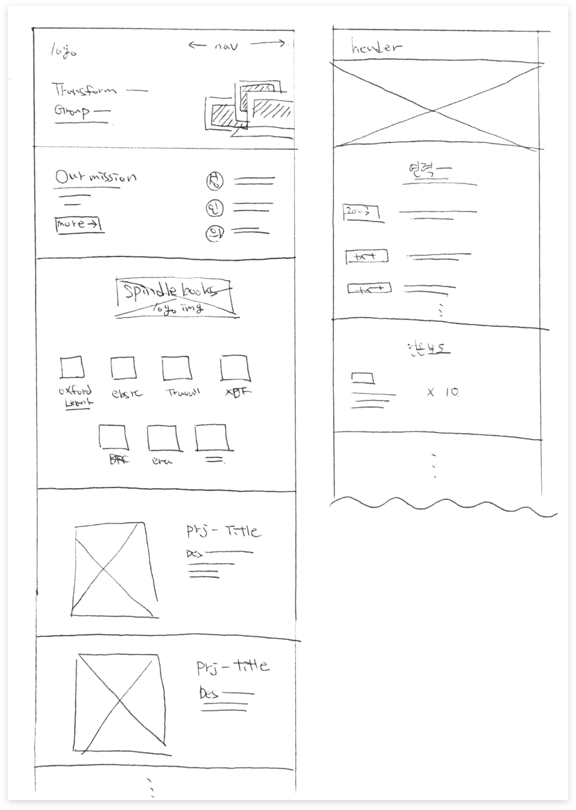 logo
← nav →
Transform
Group
Our mission
more →
인
spindle books
logo img
oxford
ebsrc
Travail
XBF
era
prj-Title
Des
prj-Title
Des
header
연혁
2003
txt
txt
x 10